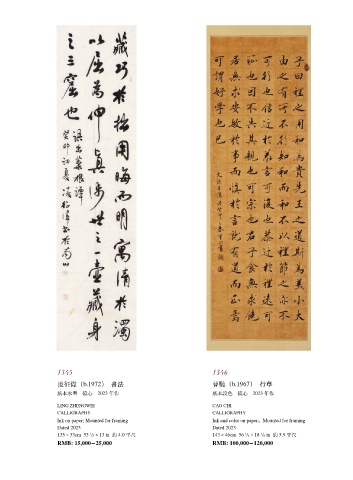 藏巧於拙用晦而明寓清於濁
以屈為伸真涉世之一壺藏身
之三窟也
癸卯初夏
子曰禮之用和為貴先王之道斯為美小大
由之有所不行知和而和不以禮節之亦不
可行也信近於義言可復也恭近於禮遠
也因不失其親也可宗也君子食無求飽
居無求安敏於事而慎於言就有道而正焉
可謂好學也已
1345
(b.1972) 書法
紙本水墨 鏡心 2023年作
LING ZHENGWEI
CALLIGRAPHY
Ink on paper; Mounted for framing
Dated 2023
135×33cm 53 ⅛×13 in 約4.0平尺
RMB: 15,000—25,000
1346
(b.1967) 行草
紙本設色 鏡心 2023年作
CAO CHI
CALLIGRAPHY
Ink and color on paper; Mounted for framing
Dated 2023
RMB: 100,000—120,000